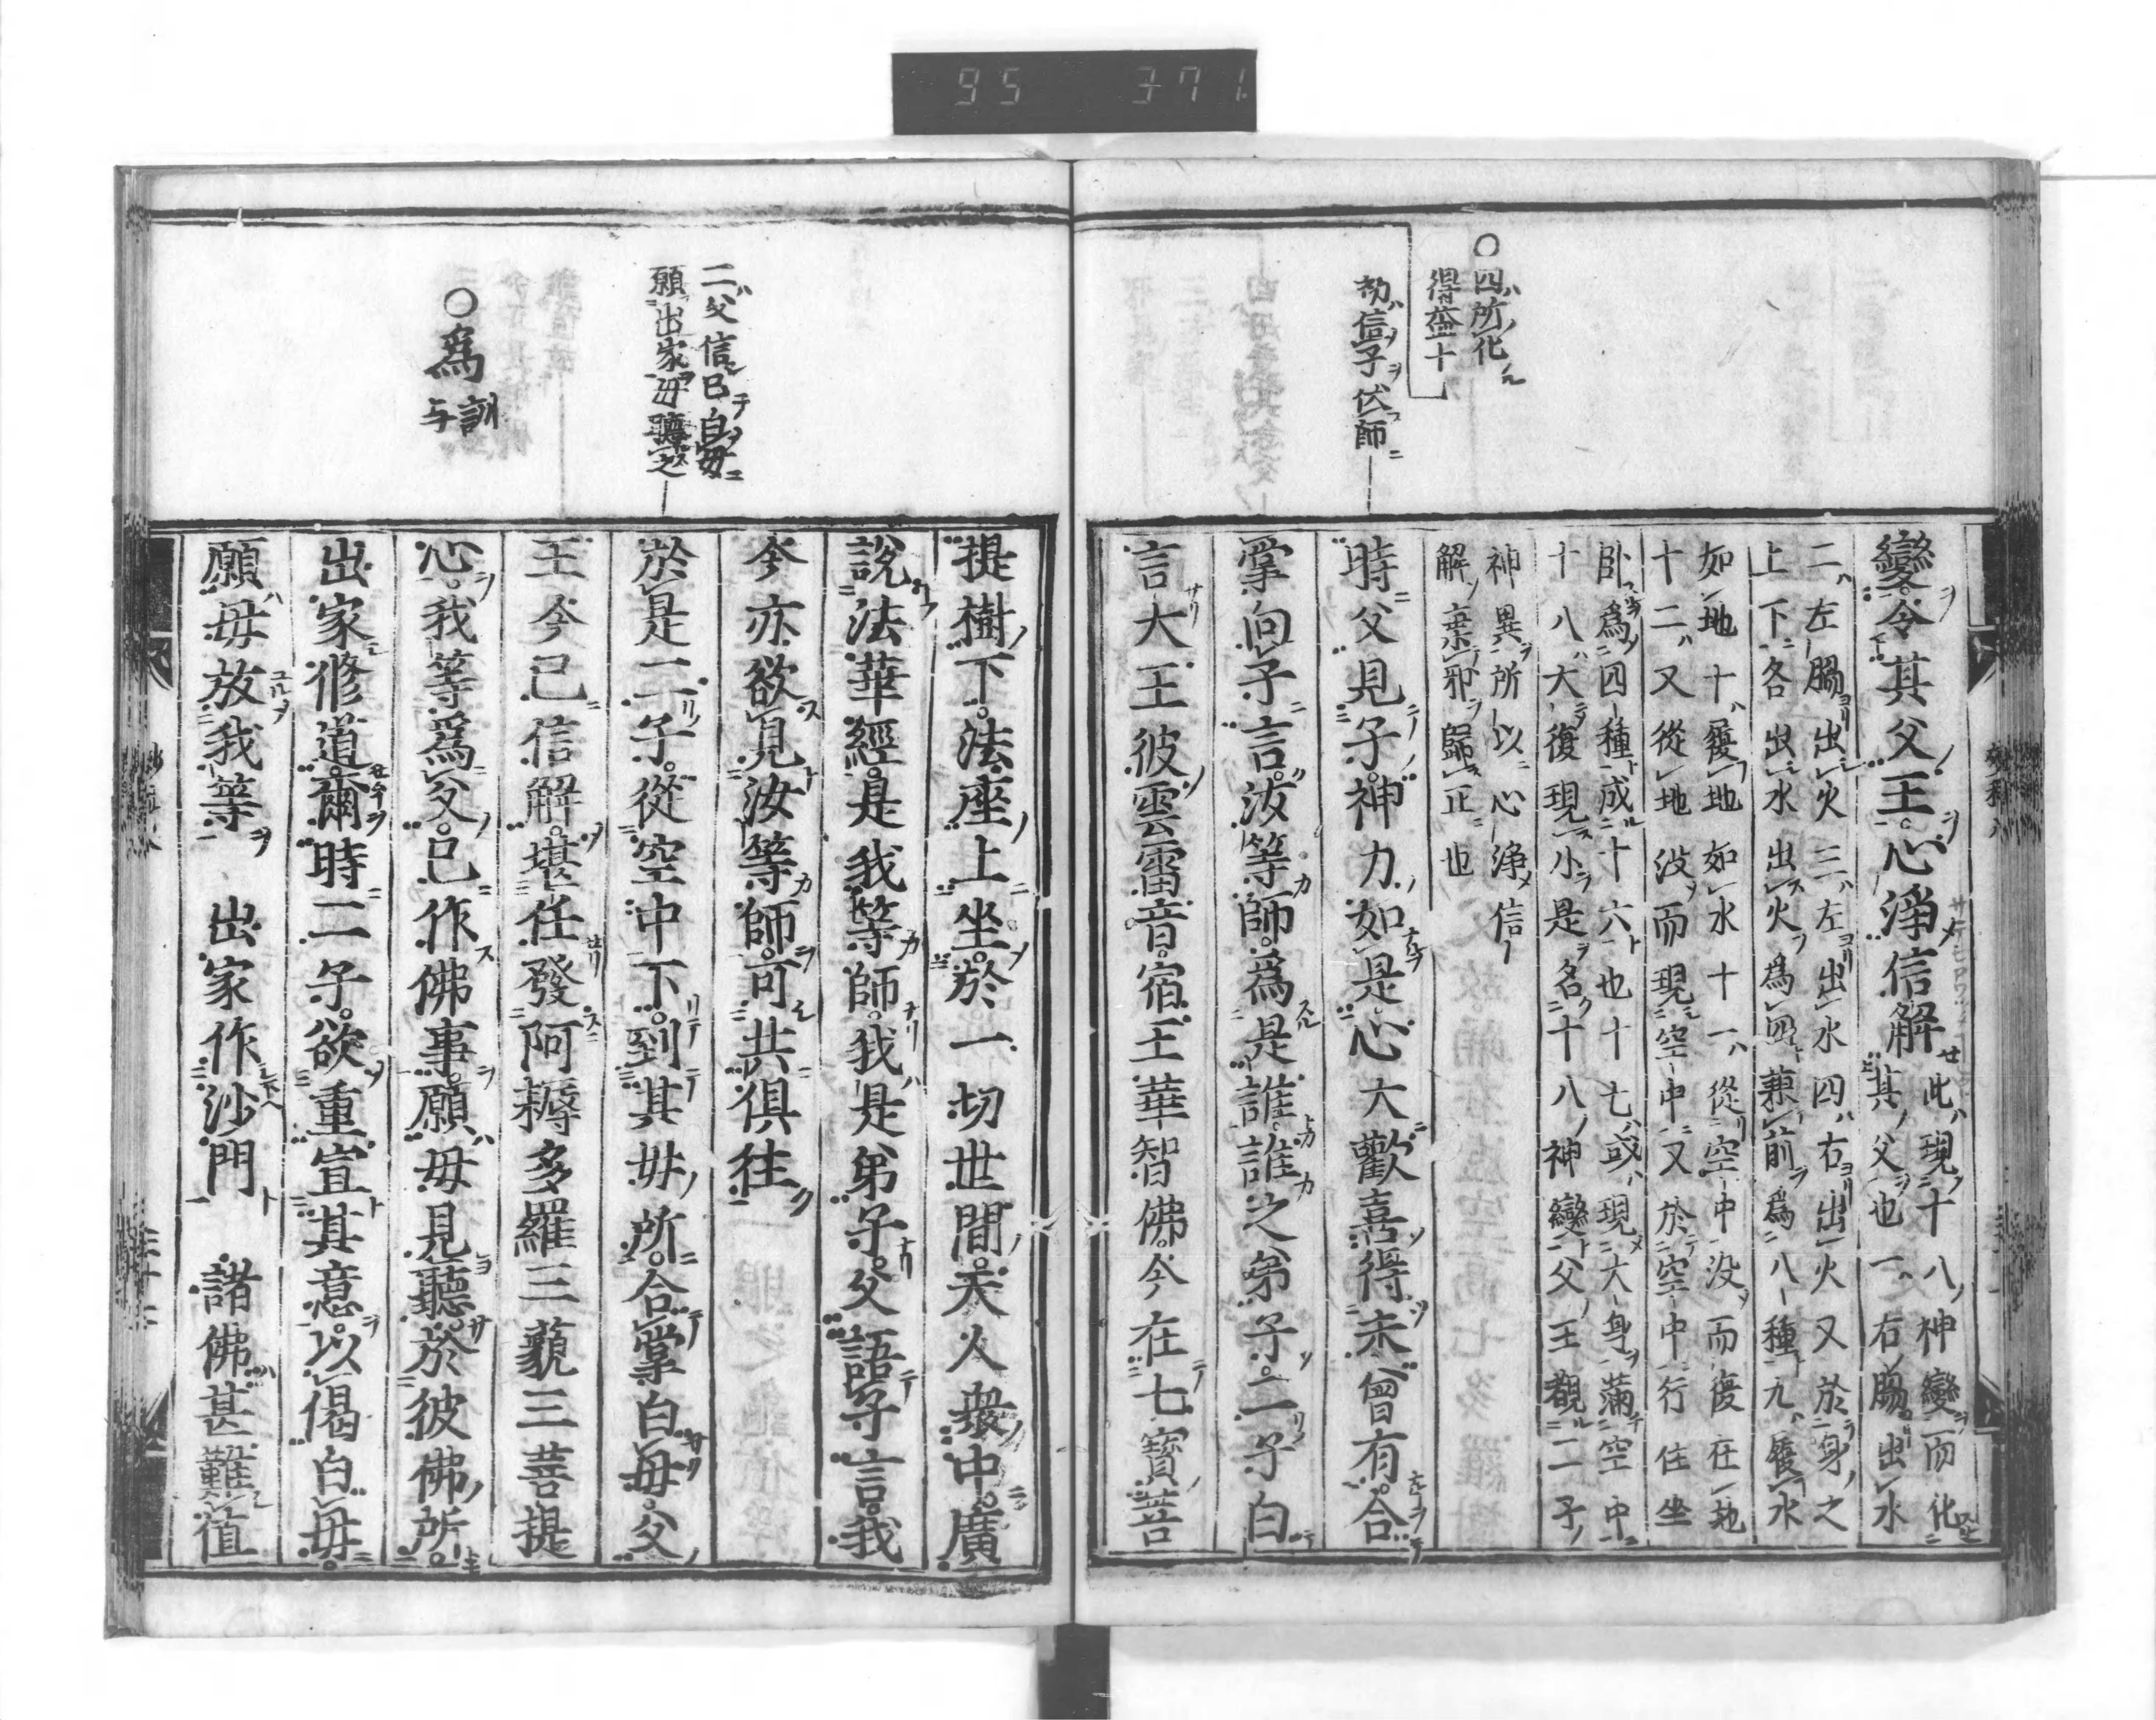 95 371
〇四所化
得益十
初信子伏師
變令其父王心淨信解
此現十八神變而化
其父也一右脇出水
二左脇出火三左出水四右出火又於身之
上下各出水出火爲四兼前爲八種九履水
如地十履地如水十一從空中没而復在地
十二又從地没而現空中又於空中行住坐
卧爲四種成十六也十七或現大身滿空中
十八大復現小是名十八神變父王覩二子
神異所以心淨信
解棄邪歸正也
時父見子神力如是心大歡喜得未曾有合
掌向子言汝等師爲是誰誰之弟子二子白
言大王彼雲雷音宿王華智佛今在七寳菩
二父信已白母
願出家母聽之
〇爲訓
与
提樹下法座上坐於一切世間天人衆中廣
說法華經是我等師我是弟子父語子言我
今亦欲見汝等師可共俱往
於是二子從空中下到其母所合掌白母父
王今已信解堪任發阿耨多羅三藐三菩提
心我等爲父已作佛事願母見聽於彼佛所
出家修道爾時二子欲重宣其意以偈白母
願母放我等　出家作沙門　諸佛甚難值